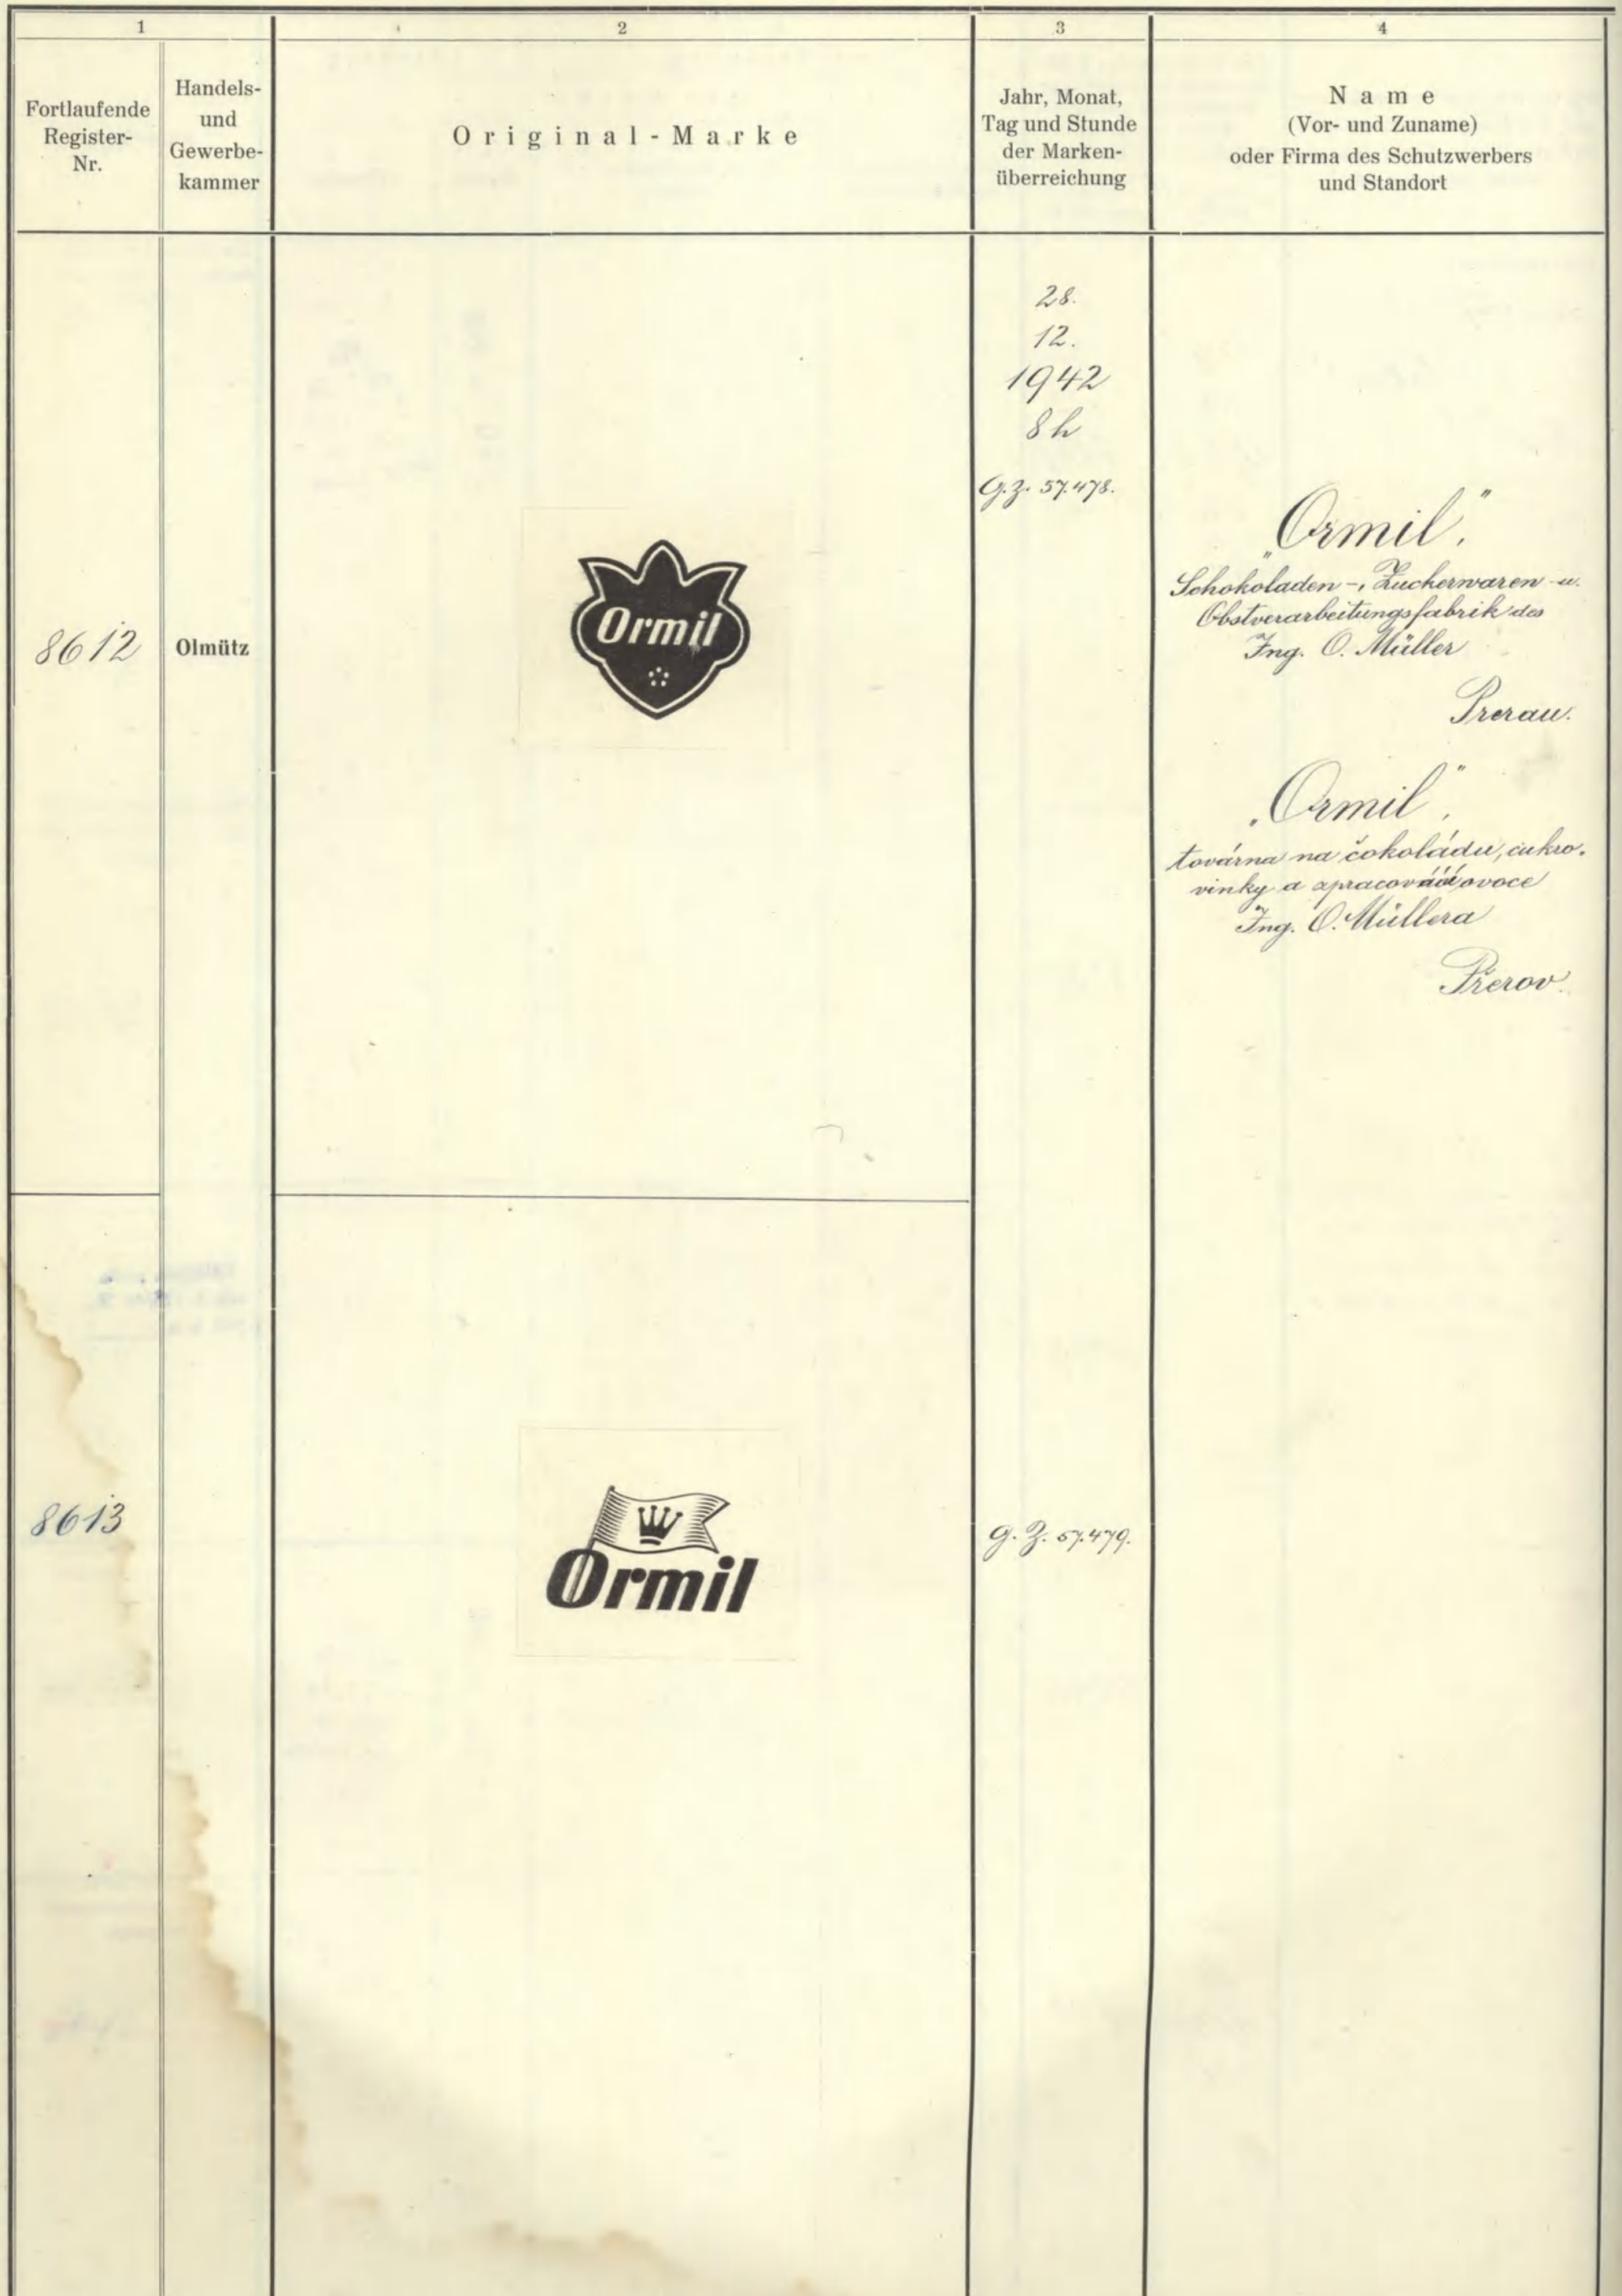 1
2
3
4
Fortlaufende
Register-
Nr.
Handels-
und
Gewerbe-
kammer
Original-Marke
Jahr, Monat,
Tag und Stunde
der Marken-
überreichung
Name
(Vor- und Zuname)
oder Firma des Schutzwerbers
und Standort
8612
Olmütz
Ormil
28.
12.
1942
8h
G.Z. 57.478.
„Ormil",
Schokoladen-, Zuckerwaren- u.
Obstverarbeitungsfabrik des
Ing. O. Müller
Prerau.
„Ormil",
továrna na čokoládu, cukro-
vinky a zpracování ovoce
Ing. O. Müllera
Přerov.
8613
Ormil
G.Z. 57.479.